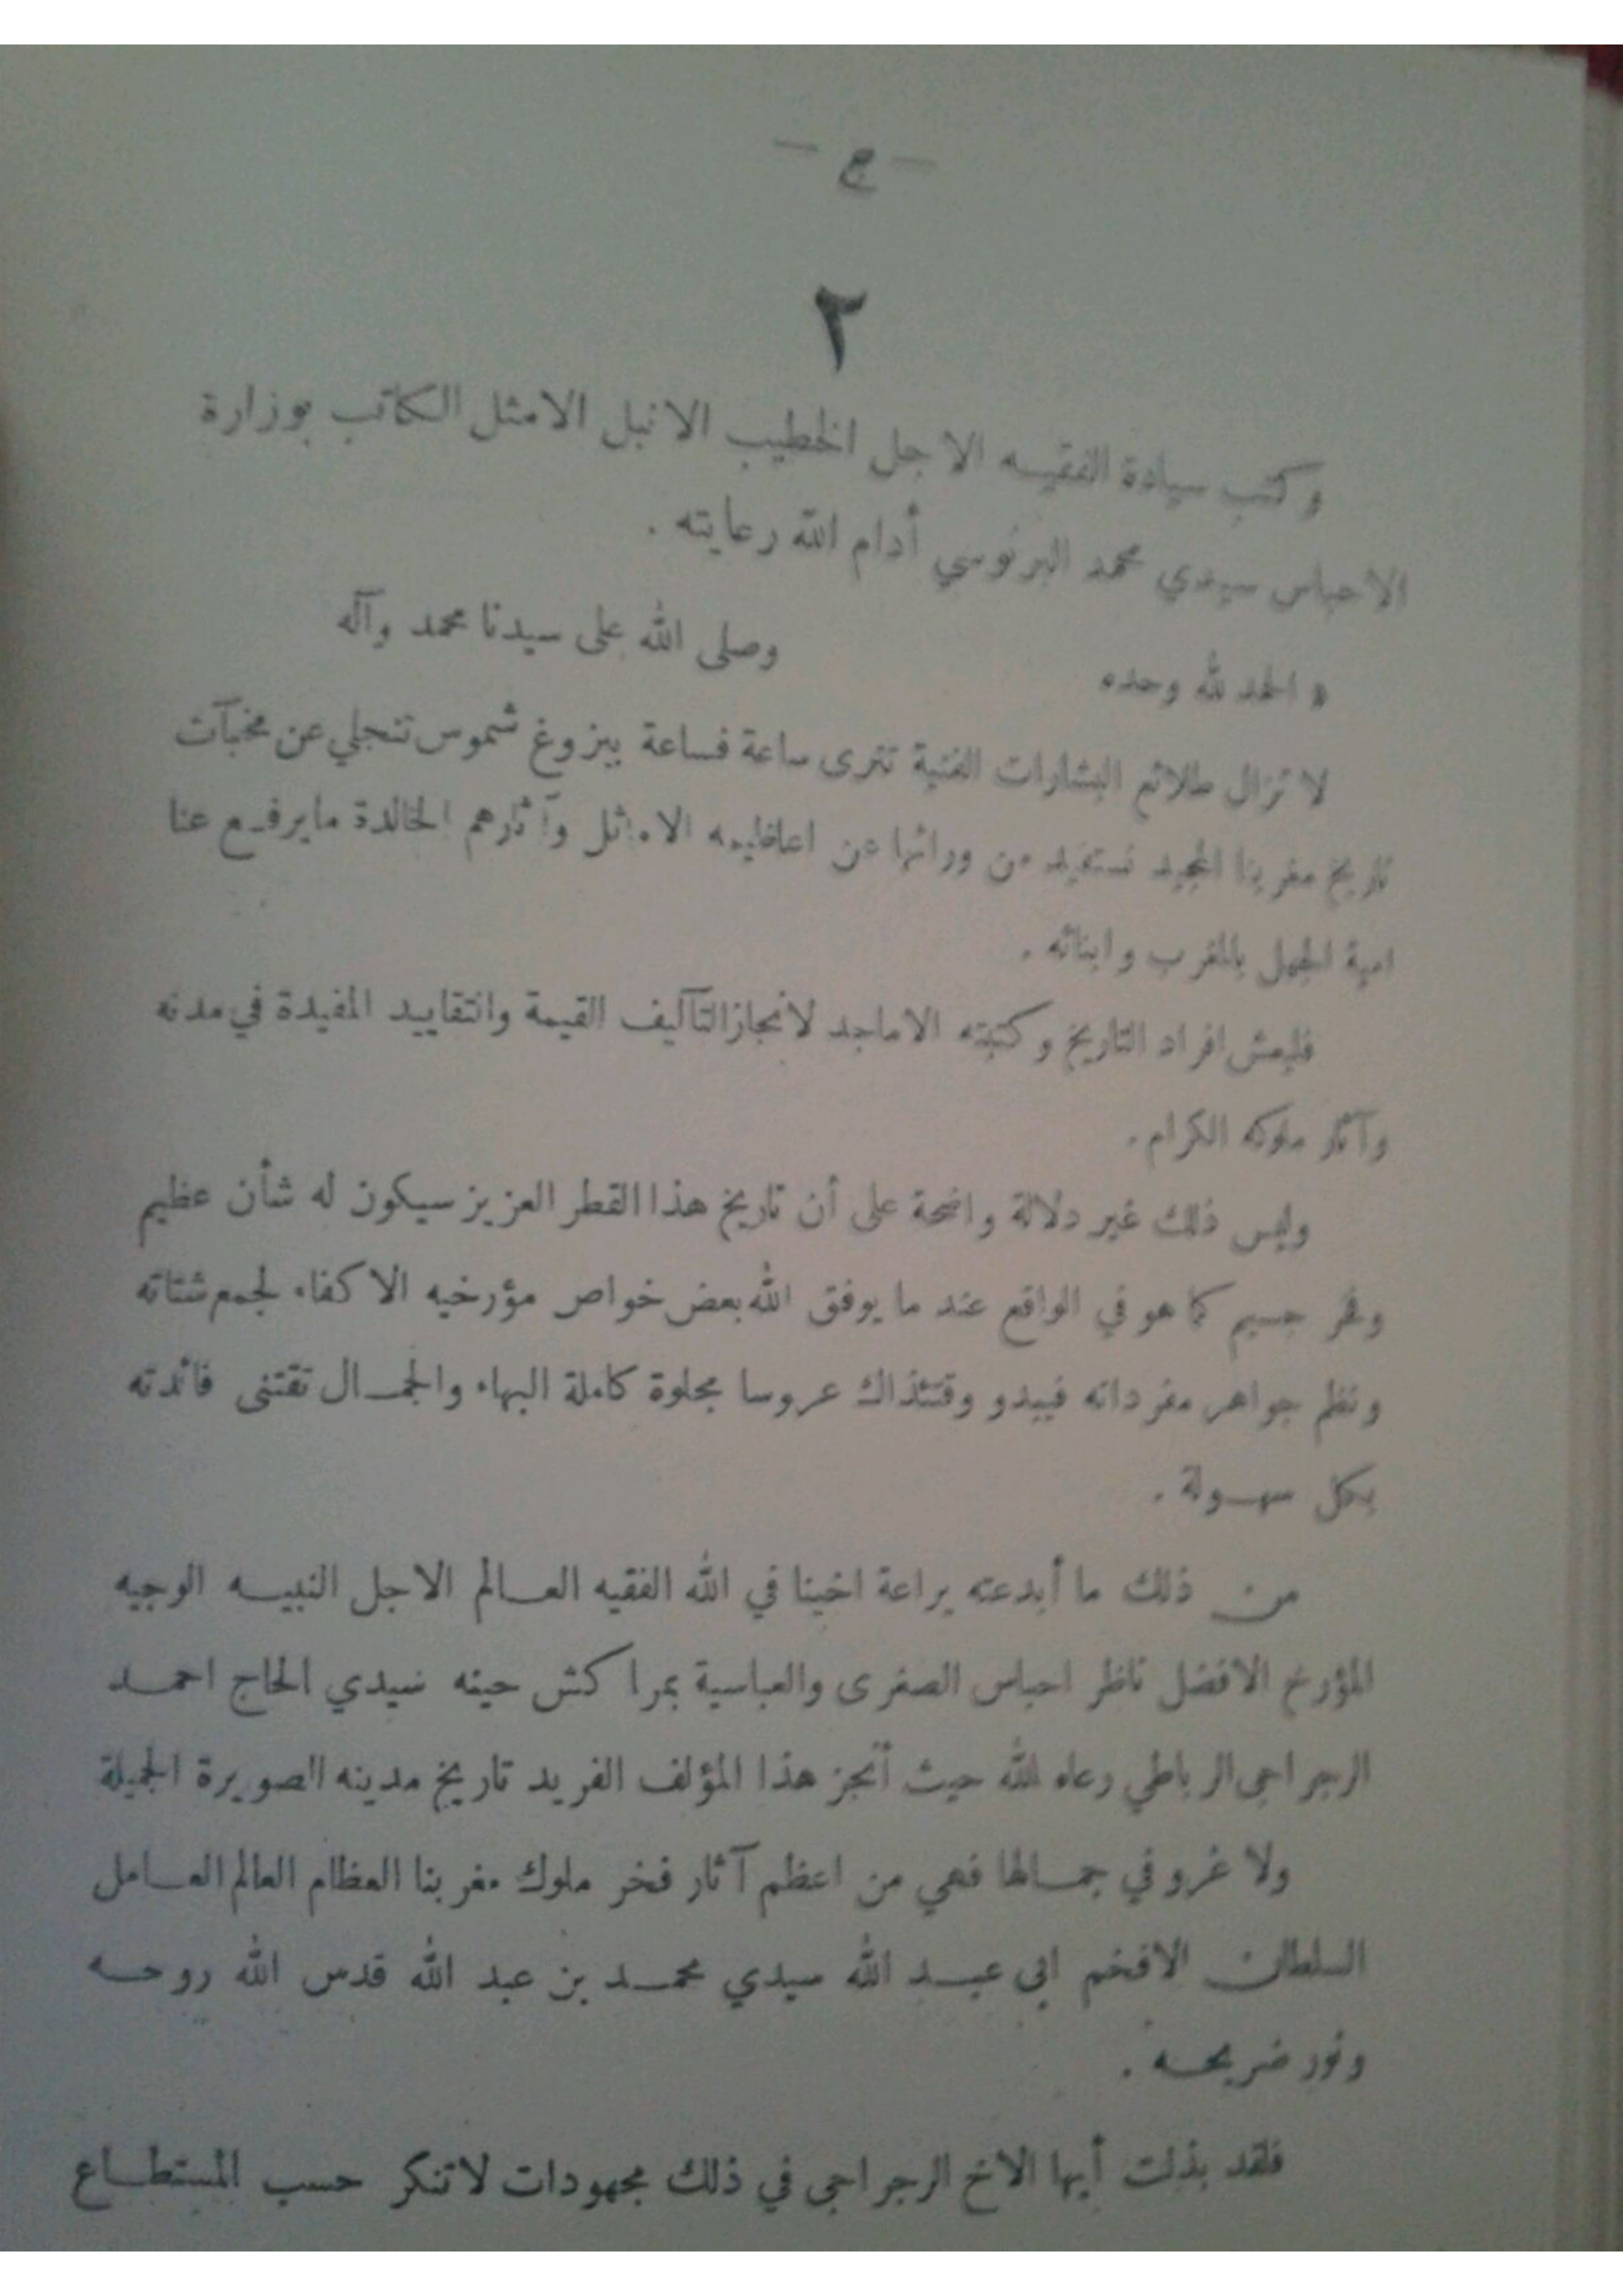 — ج —
٢
وكتب سيادة الفقيه الاجل الخطيب الانبل الامثل الكاتب بوزارة
الاحباس سيدي محمد البرنوسي أدام الله رعايته .
« الحمد لله وحده وصلى الله على سيدنا محمد وآله
لا تزال طلائع البشارات الفنية تترى ساعة فساعة ببزوغ شموس تنجلي عن مخبآت
تاريخ مغربنا المجيد نستفيد من ورائها عن اعاظيمه الاماثل وآثارهم الخالدة ما يرفع عنا
امية الجهل بالمغرب وابنائه .
فليعش افراد التاريخ وكتبته الاماجد لانجاز التآليف القيمة والتقاييد المفيدة في مدنه
وآثار ملوكه الكرام .
وليس ذلك غير دلالة واضحة على أن تاريخ هذا القطر العزيز سيكون له شأن عظيم
وفخر جسيم كما هو في الواقع عند ما يوفق الله بعض خواص مؤرخيه الاكفاء لجمع شتاته
ونظم جواهر مفرداته فيبدو وقتئذاك عروسا مجلوة كاملة البهاء والجمال تقتنى فائدته
بكل سهولة .
من ذلك ما أبدعته يراعة اخينا في الله الفقيه العالم الاجل النبيه الوجيه
المؤرخ الافضل ناظر احباس الصغرى والعباسية بمراكش حينه سيدي الحاج احمد
الرجراجي الرباطي رعاه الله حيث أنجز هذا المؤلف الفريد تاريخ مدينه الصويرة الجميلة
ولا غرو في جمالها فهي من اعظم آثار فخر ملوك مغربنا العظام العالم العامل
السلطان الافخم ابى عبد الله سيدي محمد بن عبد الله قدس الله روحه
ونور ضريحه .
فلقد بذلت أيها الاخ الرجراجى في ذلك مجهودات لا تنكر حسب المستطاع